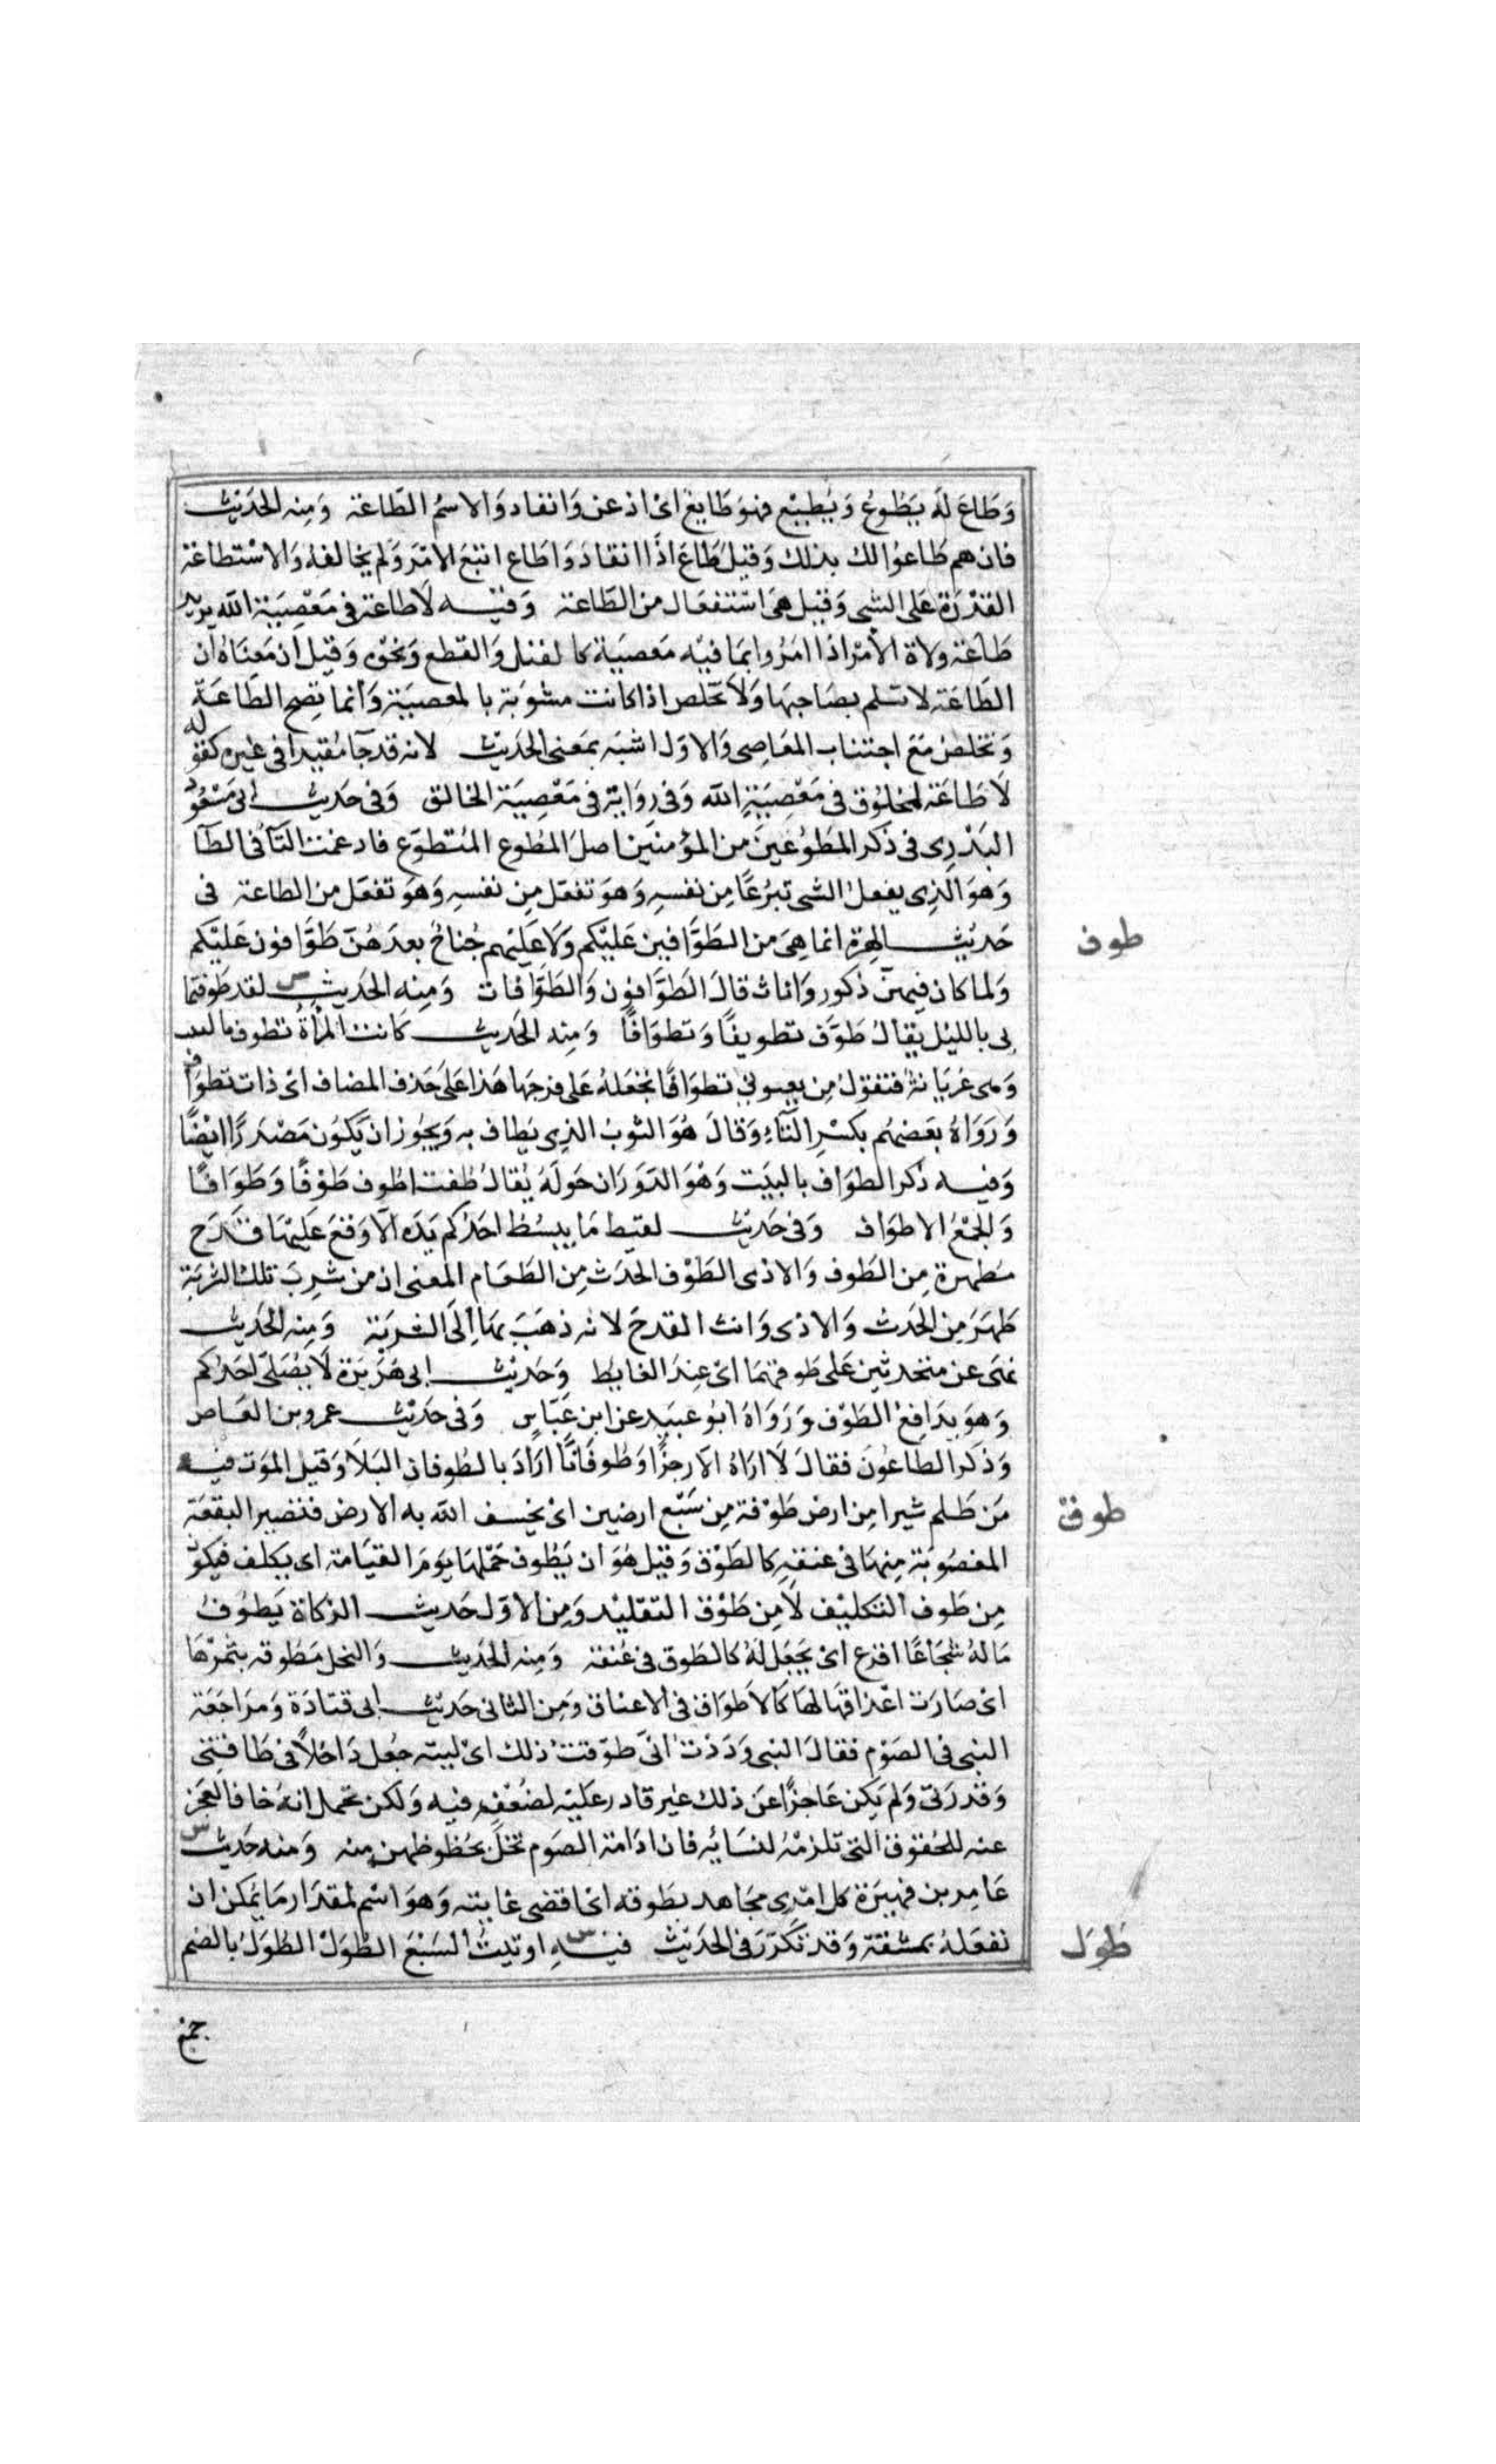 وَطَاعَ لَهُ يَطُوعُ وَيُطِيْع فهوَ طَايِعٌ اىْ اذعن وَانقاد وَالاسمُ الطَّاعَة وَمِنه الحَدِيْث
فان هم طَاعوُا لك بذلك وَقيْل طَاعَ اذَا انقادَ وَاطَاع اتبَعَ الامْرَ وَلم يخالفهُ وَالاسْتطاعَة
القدْرَة عَلى الشى وَقيْل هىَ اسْتفعَال من الطَّاعَة وَفيْه لَا طاعَة فى مَعْصِيَة الله يريد
طَاعَة ولاة الأمْر اذا امَرُوا بمَا فيْه مَعصيَة كالقتل وَالقطع وَنحْوه وَقيْل ان مَعْنَاهُ ان
الطَّاعَة لا تسلم بصَاحِبهَا وَلَا تخلص اذا كانت مشوبَة بالمعصيَة وَانما تصح الطَّاعَة
وَتخلصُ مَعَ اجتناب المعَاصى وَالاوّل اشبَه بمَعنى الحَديْث لانه قد جآ مُقيدًا فى غيْره كقوله
لَا طَاعَة لمخلوُق فى مَعْصِيَةِ الله وَفى رِوَايَة فى مَعْصِيَة الخالق وَفى حَديث ابى مَسْعُود
البَدْرِى فى ذكر المطوّعينَ من المؤمنين اصلَ المُطوع المُتطوّع فادغمت التَآ فى الطآ
وَهوَ الّذِى يفعلُ الشى تبرُعًا مِن نفسِهِ وَهوَ تفعّل مِن نفسِهِ وَهوَ تفعّل من الطاعَة فى
حَديْث الهرة انما هىَ من الطَّوَّافين عَليْكم وَلَا عَليْهم جُناحٌ بعدَهُنّ طَوَّافون عَليْكم
وَلما كان فيهنّ ذكور وَاناث قالَ الطَوَّافون وَالطَوَّافات وَمِنه الحَديث لقد طَوفتما
بى بالليْل يقالُ طَوَّف تطويفًا وَتطوَافًا وَمِنه الحَديث كَانت المرْأةُ تطوف بالبيت
وَهى عُريَانة فتقولُ مِن يعيرنى تطوَافًا تجْعَلهُ عَلى فرجهَا هَذا عَلى حَذف المضاف اىْ ذات تطوَاف
وَرَوَاهُ بعَضهُم بكسْرِ التَآءِ وَقالَ هُوَ الثوبُ الذِى يطاف به وَيجُوز ان يَكوُن مَصْدرًا ايْضًا
وَفيه ذكر الطوَاف بالبيَت وَهْوَ الدَّوَرَان حَولهُ يُقالُ طُفت اطوف طَوْفًا وَطوَافًا
وَالجَمْعُ الاطوَاف وَفى حَديْث لقيط مَا يبسُط احَدُكم يَدَه الَّا وَقعَ عَليْهَا قدَح
مطهرة مِن الطَوف وَالاذى الطَوْف الحَدَث مِن الطَعَام المعنى ان من شربَ تلك الشربَة
طَهرَ مِن الحَدث وَالاذى وَانث القدحَ لانه ذهَبَ بهَا اِلَى الشربَة وَمِنه الحَديث
نهى عن متحَدثين عَلى طَوفهمَا اىْ عِندَ الغايط وَحَديْث ابى هُرَيرَة لَا يُصَلى احَدُكم
وَهوَ يدَافِعُ الطَوْف وَرَوَاهُ ابوُ عبَيد عن ابن عَبّاس وَفى حَديْث عمرو بن العَاص
وَذكر الطاعُونَ فقالَ لَا ارَاهُ الّا رِجزًا وَطُوفَانًا ارَادَ بالطوفان البَلَا وَقيْل الموَت فيه
مَن ظَلم شبرا مِن ارض طَوْقه مِن سَبْع ارضين اىْ يخسف الله به الارض فتصير البقعَة
المغصُوبَة مِنهَا فى عنقهِ كالطَوْق وَقيْل هُوَ ان يَطُوف حَمْلهَا يَومَ القيَامَة اى يكلف فيكون
مِن طَوف التكليْف لَا مِن طَوْق التقليْد وَمِن الاوّل حَديث الزكاة يَطوفُ
مَالهُ شُجَاعًا اقرَع اىْ يَجعَل لهُ كالطَوق فى عنقه وَمِنه الحَديث وَالنخل مَطوقه بثمَرْهَا
اىْ صَارَت اعْذاقهَا لهَا كالاَطوَاق فى الاعناق وَمِن الثانى حَديْث ابى قتادَة وَمرَاجَعَة
النبى فى الصَوْم فقالَ النبى وَدَدْت انّى طوّقت ذلك اىْ ليته جُعل دَاخلًا فى طاقتى
وَقدْرَتى وَلم يَكن عَاجزًا عَن ذلك غيْر قادر عَليْه لضُعْف فيه وَلكن يحتمل انهُ خاف العجز
عنه للحُقوق التى تلزمُهُ لنسَائِه فان ادَامَة الصَوم تخلّ بحُظوظهن مِنه وَمنه حَديْث
عَامِر بن فهيرَة كل امرِى مجَاهد بطَوقه اىْ اقصى غايته وَهوَ اسْم لمقدَار مَا يُمكن ان
تفعَلهُ بمشقة وَقد تكَرّرَ فى الحَديْث فيْه اوتيتُ السَبْعَ الطُوَلُ الطُوَلُ بالضم
طوف
طوق
طول
جمع